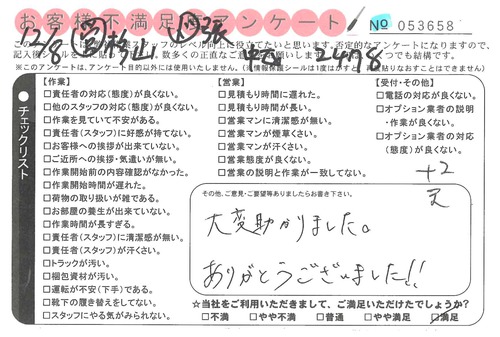 お客様不満足アンケート
No 053658
12/8 杉山 張 2478
このアンケートは、スタッフのレベル向上に役立てたいと思います。否定的なアンケートになりますので、
※このアンケートは、アンケート目的以外には使用いたしません。
チェックリスト
【作業】
□責任者の対応(態度)が良くない。
□他のスタッフの対応(態度)が良くない。
□作業を見ていて不安がある。
□責任者(スタッフ)に好感が持てない。
□お客様への挨拶が出来ていない。
□ご近所への挨拶・気遣いが無い。
□作業開始前の内容確認がなかった。
□作業開始時間が遅れた。
□荷物の取り扱いが雑である。
□お部屋の養生が出来ていない。
□作業時間が長すぎる。
□責任者(スタッフ)に清潔感が無い。
□責任者(スタッフ)が汗くさい。
□トラックが汚い。
□梱包資材が汚い。
□運転が不安(下手)である。
□靴下の履き替えをしてない。
□スタッフにやる気がみられない。
【営業】
□見積もり時間に遅れた。
□見積もり時間が長い。
□営業マンに清潔感が無い。
□営業マンが煙草くさい。
□営業マンが汗くさい。
□営業態度が良くない。
□営業の説明と作業が一致してない。
【受付・その他】
□電話の対応が良くない。
□オプション業者の説明
・作業が良くない。
□オプション業者の対応
(態度)が良くない。
+2
その他、ご意見・ご要望等ありましたらお書き下さい。
大変助かりました。
ありがとうございました!!
☆当社をご利用いただきまして、ご満足いただけたでしょうか?
□不満 □やや不満 □普通 □やや満足 ☑満足